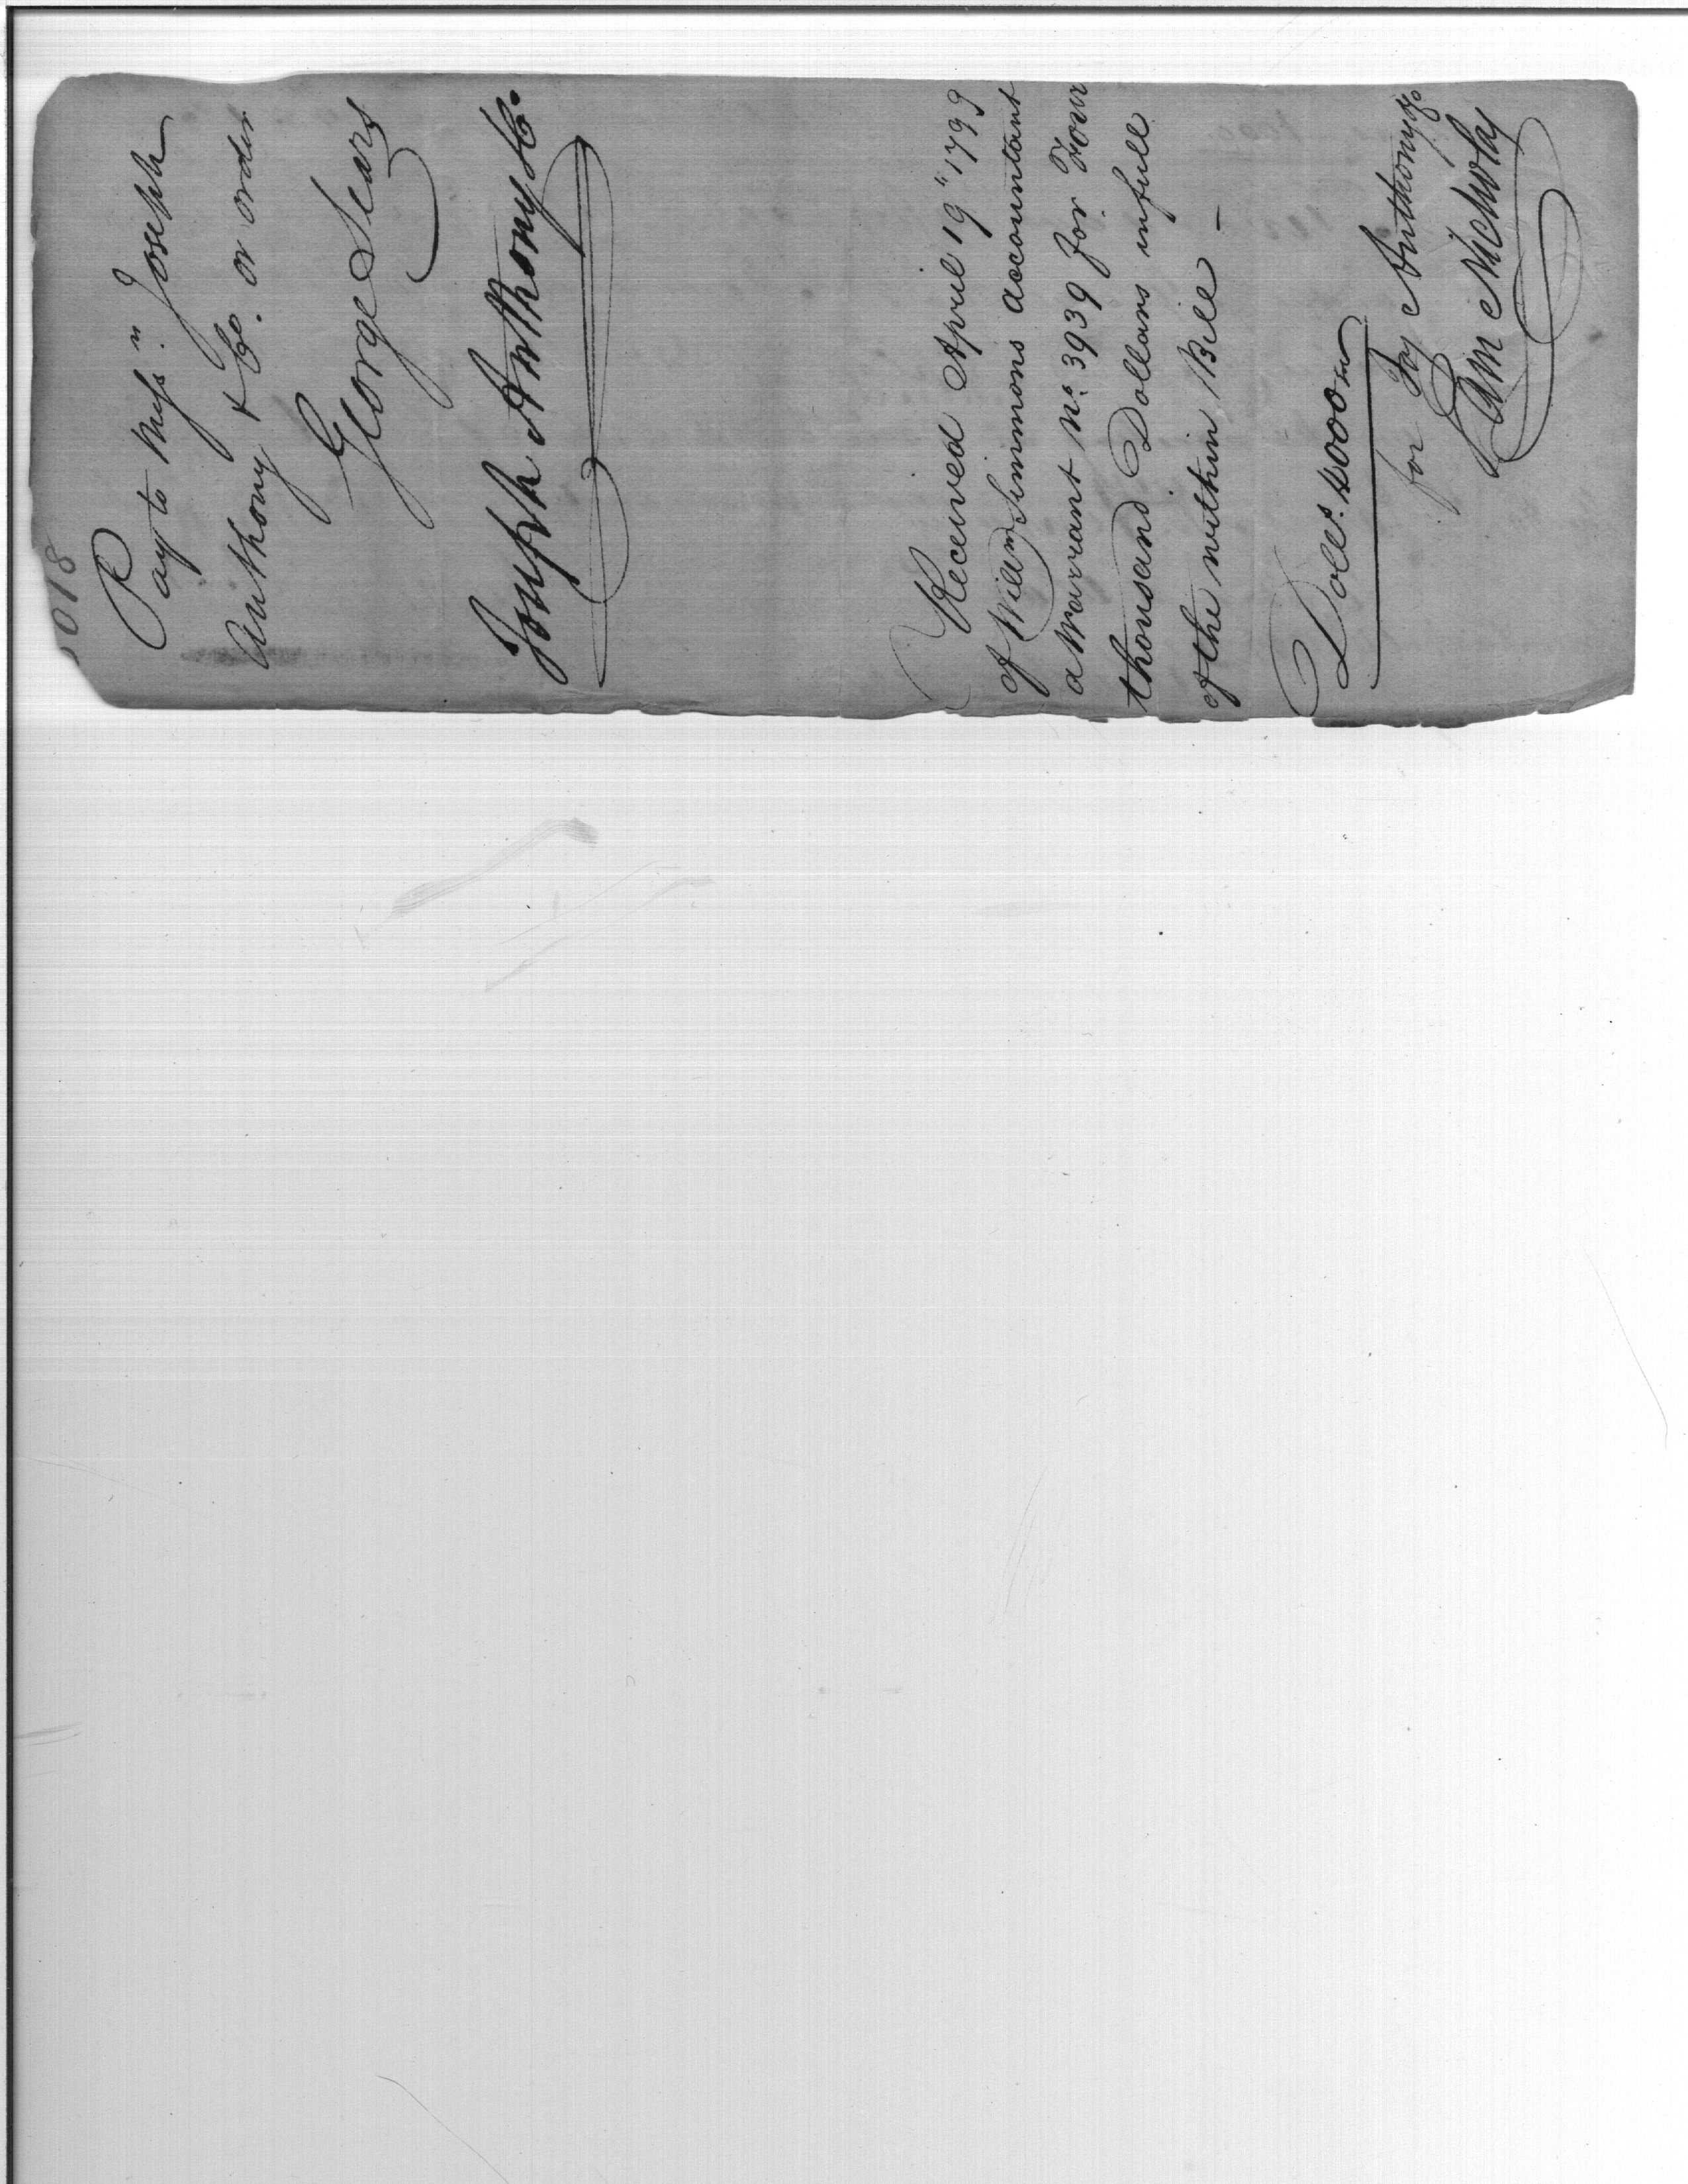 5018
Pay to Mess.rs Joseph
Anthony & Co. or order
George Sears
Joseph Anthony & Co.
Received April 19" 1799
of William Simmons Accountant
a Warrant No. 3939 for Four
thousand Dollars in full
of the within Bill —
Dolls. 4000
for Jos Anthony & Co
Sam Nicholas